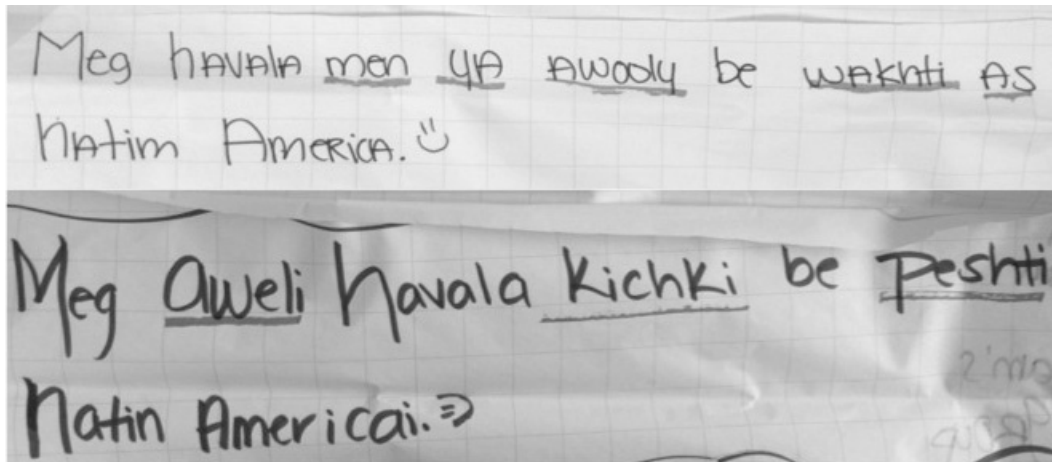 Meg havala men ya awooly be wakhti as
hatim America.
Meg aweli havala kichki be peshti
hatin Americai.